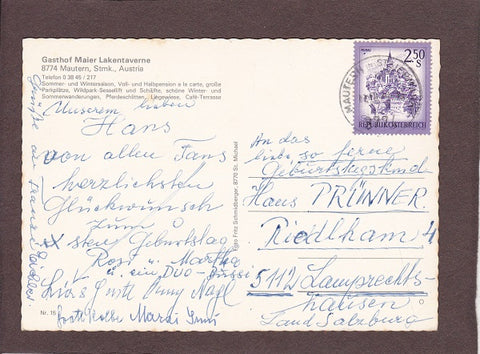 Gasthof Maier Lakentaverne
8774 Mautern, Stmk., Austria
Telefon 0 38 45 / 217
Sommer- und Wintersaison, Voll- und Halbpension a la carte, große
Parkplätze, Wildpark-Sessellift und Schilifte, schöne Winter- und
Sommerwanderungen, Pferdeschlitten, Liegewiese, Café-Terrasse
Unserem lieben
Hans
von allen Fans
herzlichsten
Glückwunsch
zum
x sten Geburtstag
Rosi u. Martha
u. ein DUO-Bussi
Nagl
Mardi
Grüße an
Nr. 15
Foto Fritz Schmidberger, 8770 St. Michael
2.50
S
REPUBLIK ÖSTERREICH
MAUTERN
An das
liebe, so ferne
Geburtstagskind
Hans PRÜNNER
Riedlkam 4
5112 Lamprechts-
hausen
Land Salzburg